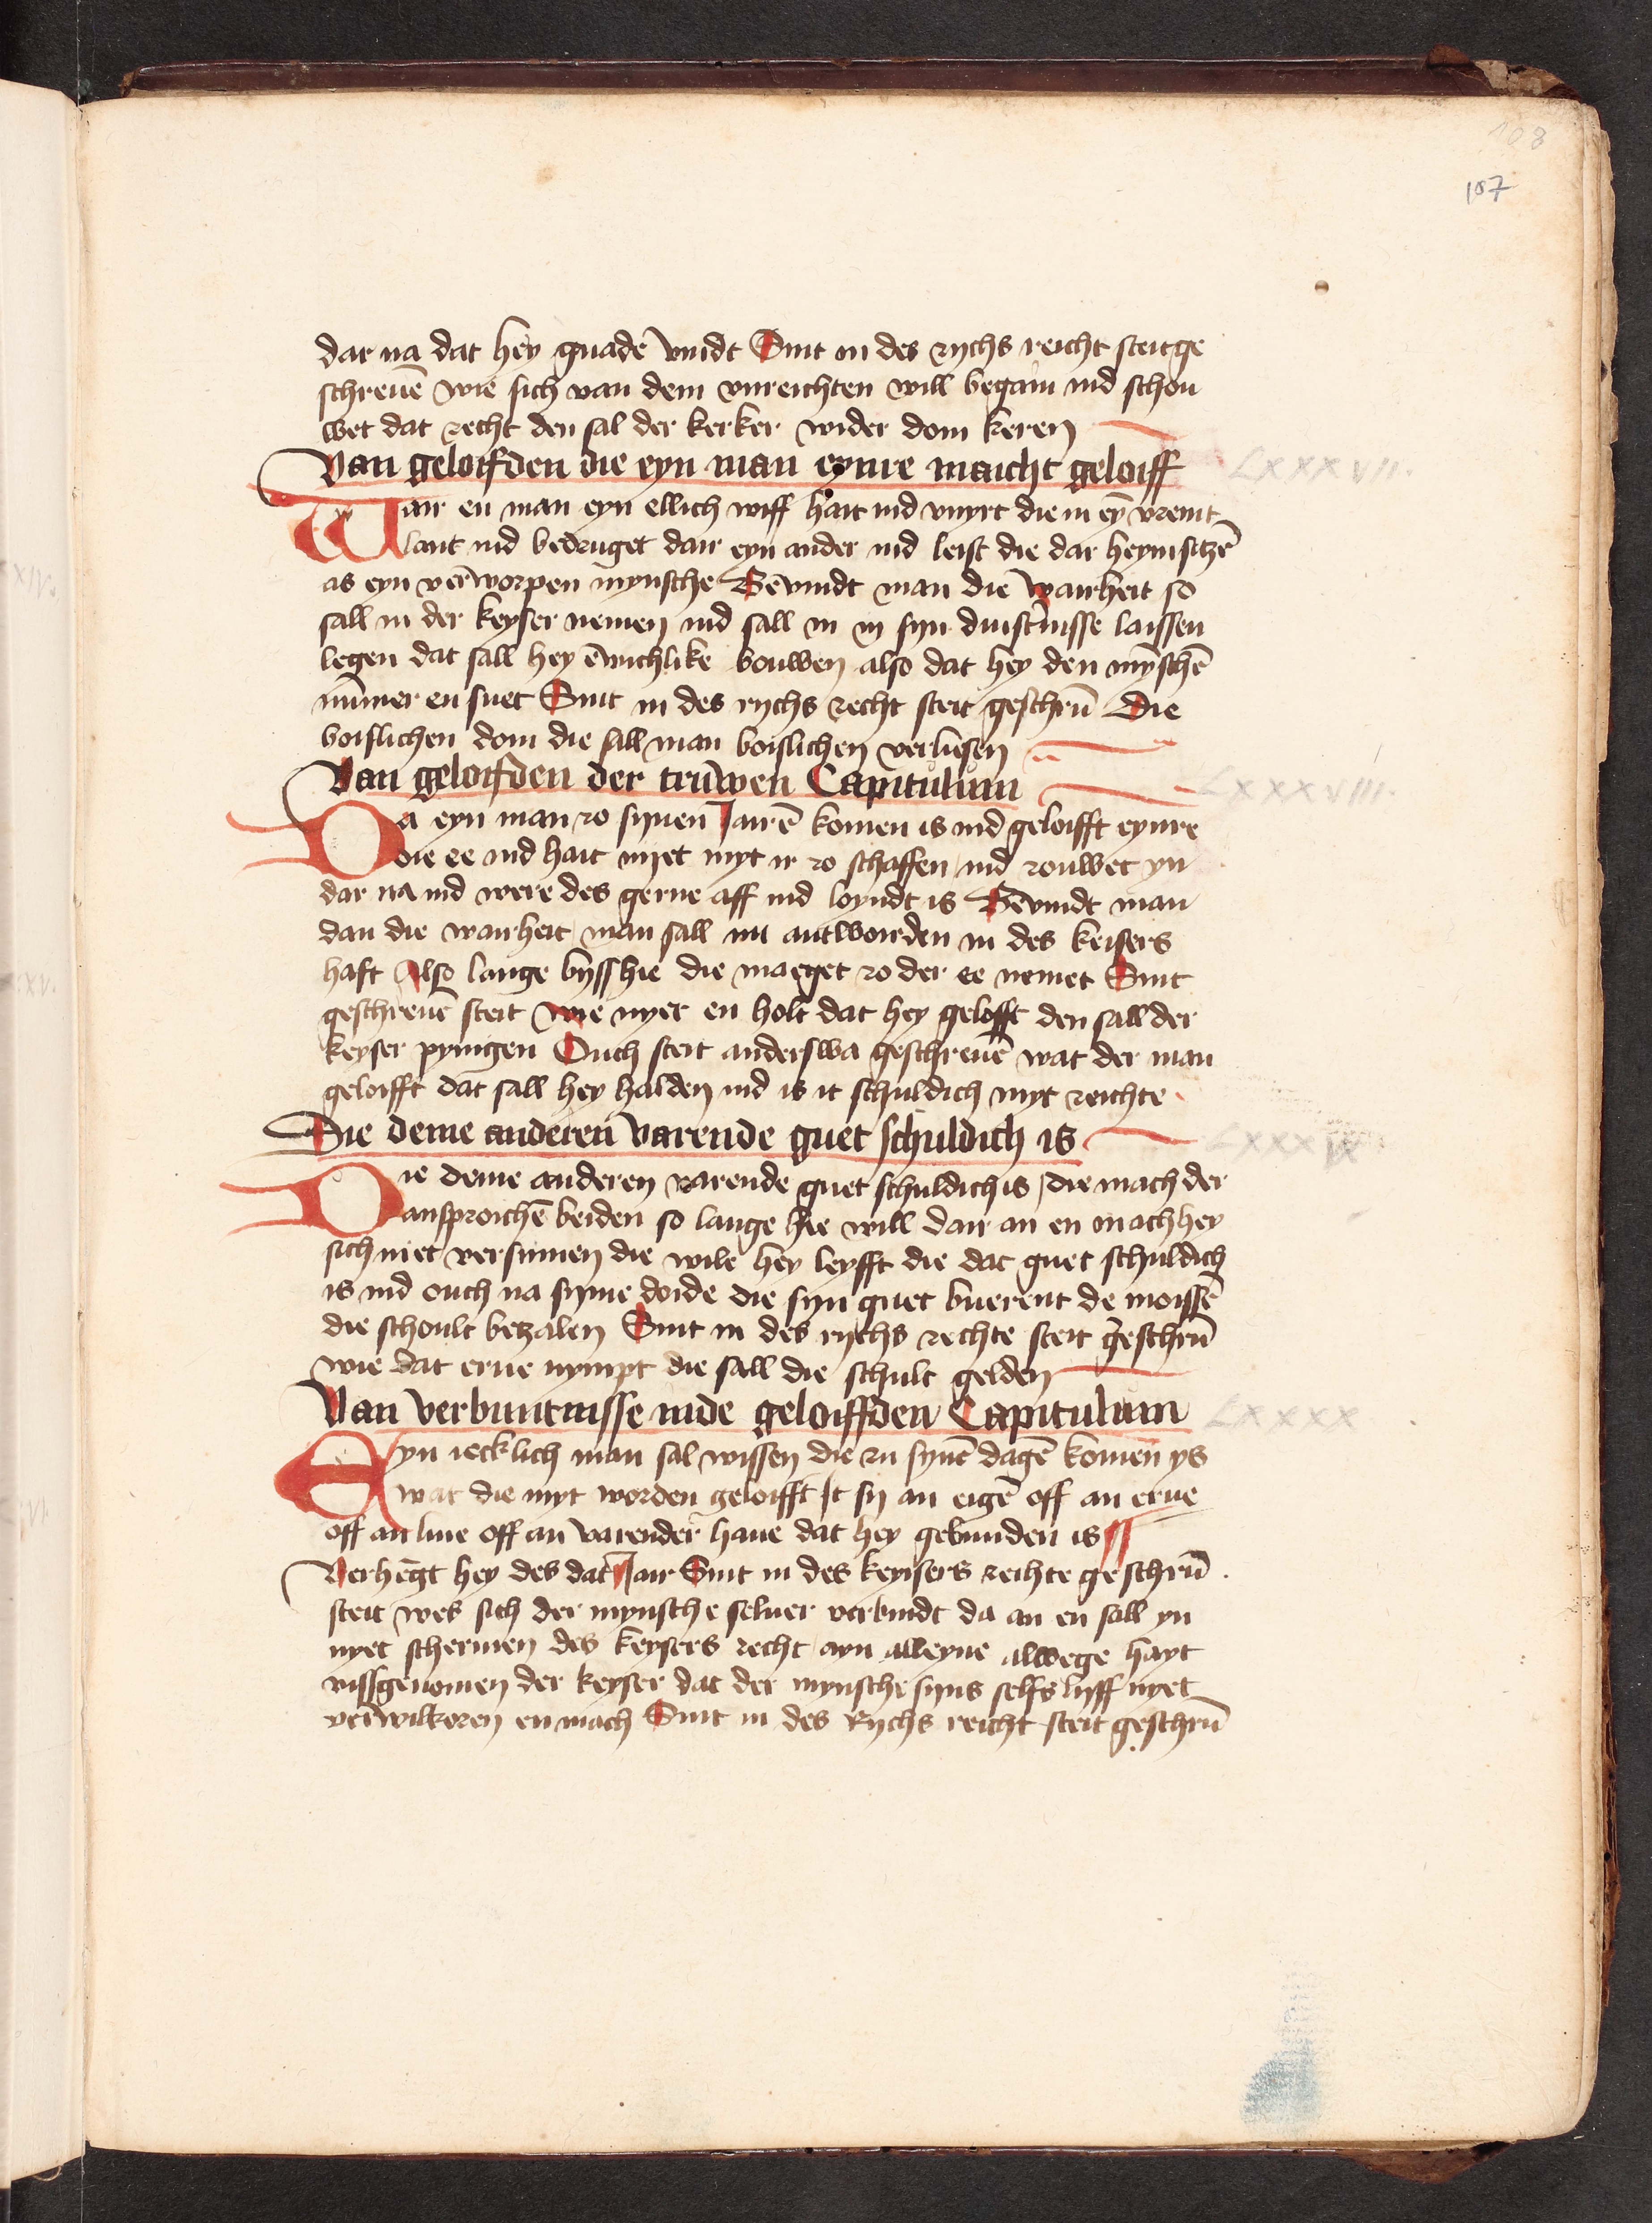 108
107
dar na dat hey gnadē vindt Sint in des rychs reicht steit ge
schreuē wie sich van dem vnreichten will begain ind schou
wet dat recht den sal der kerker wider dom keren
Van geloifden die eyn man eynre maicht geloiff
LXXXVII.
Wair en man eyn ellich wiff hait ind vnyrt die in eȳ vremt
lant ind bedruget dair eyn ander ind leist die dar heym sitzē
as eyn verworpen mynsche Bevindt man die wairheit so
sall in der keyser nemen ind sall in in syn duisternisse laissen
legen dat sall hey ēwichlike bouwen also dat hey den mȳschē
nūmer en suet Sint in des rychs recht steit geschrū Die
boisslichen dom die sall man boislichen verliesen
Van geloifden der truwen Capitulum
LXXXVIII.
Da eyn man zo synen Jairē komen is ind geloifft eynre
die ee ind hait nyet myt ir zo schaffen ind rouwet yn
dar na ind were des gerne aff ind loyndt is Bevindt man
dan die wairheit man sall in antworden in des keisers
haft Also lange byss hie die maeget zo der ee nemet Sint
geschreuē steit wie nyet en holt dat hey gelofft den sall der
keyser pyingen Ouch steit anderswa geschreuē wat der man
geloifft dat sall hey halden ind is it schuldich myt reichte
Die deme anderen varende guet schuldich is
LXXXIX
Die deme anderen varende guet schuldich is die mach der
ansproichē beiden so lange hie will dair an en mach hey
sich niet versumen die wile hey leyfft die dat guet schuldich
is ind ouch na syme doide die syn guet buerent de moissē
die schoult betzalen Sint in des rychs rechte steit geschrū
wie dat erue nympt die sall die schult gelden
Van verbuntnisse inde geloiffden Capitulum
LXXXX
Eyn iecklich man sal wissen die zu synē dagē komen ys
wat die myt worden geloifft It sy an eigē off an erue
off an liue off an varender haue dat hey gebunden is
Verhēgt hey des dat Jair Sint in des keyisers reichte geschrū
steit wes sich der mynsche seluer verbindt da an en sall yn
nyet schermen des keysers recht ayn alleyne alwege hayt
vissgenomen der keyser dat der mynsche syns selfs lyff nyet
verwilkoren en mach Sint in des Rychs reicht steit geschrū